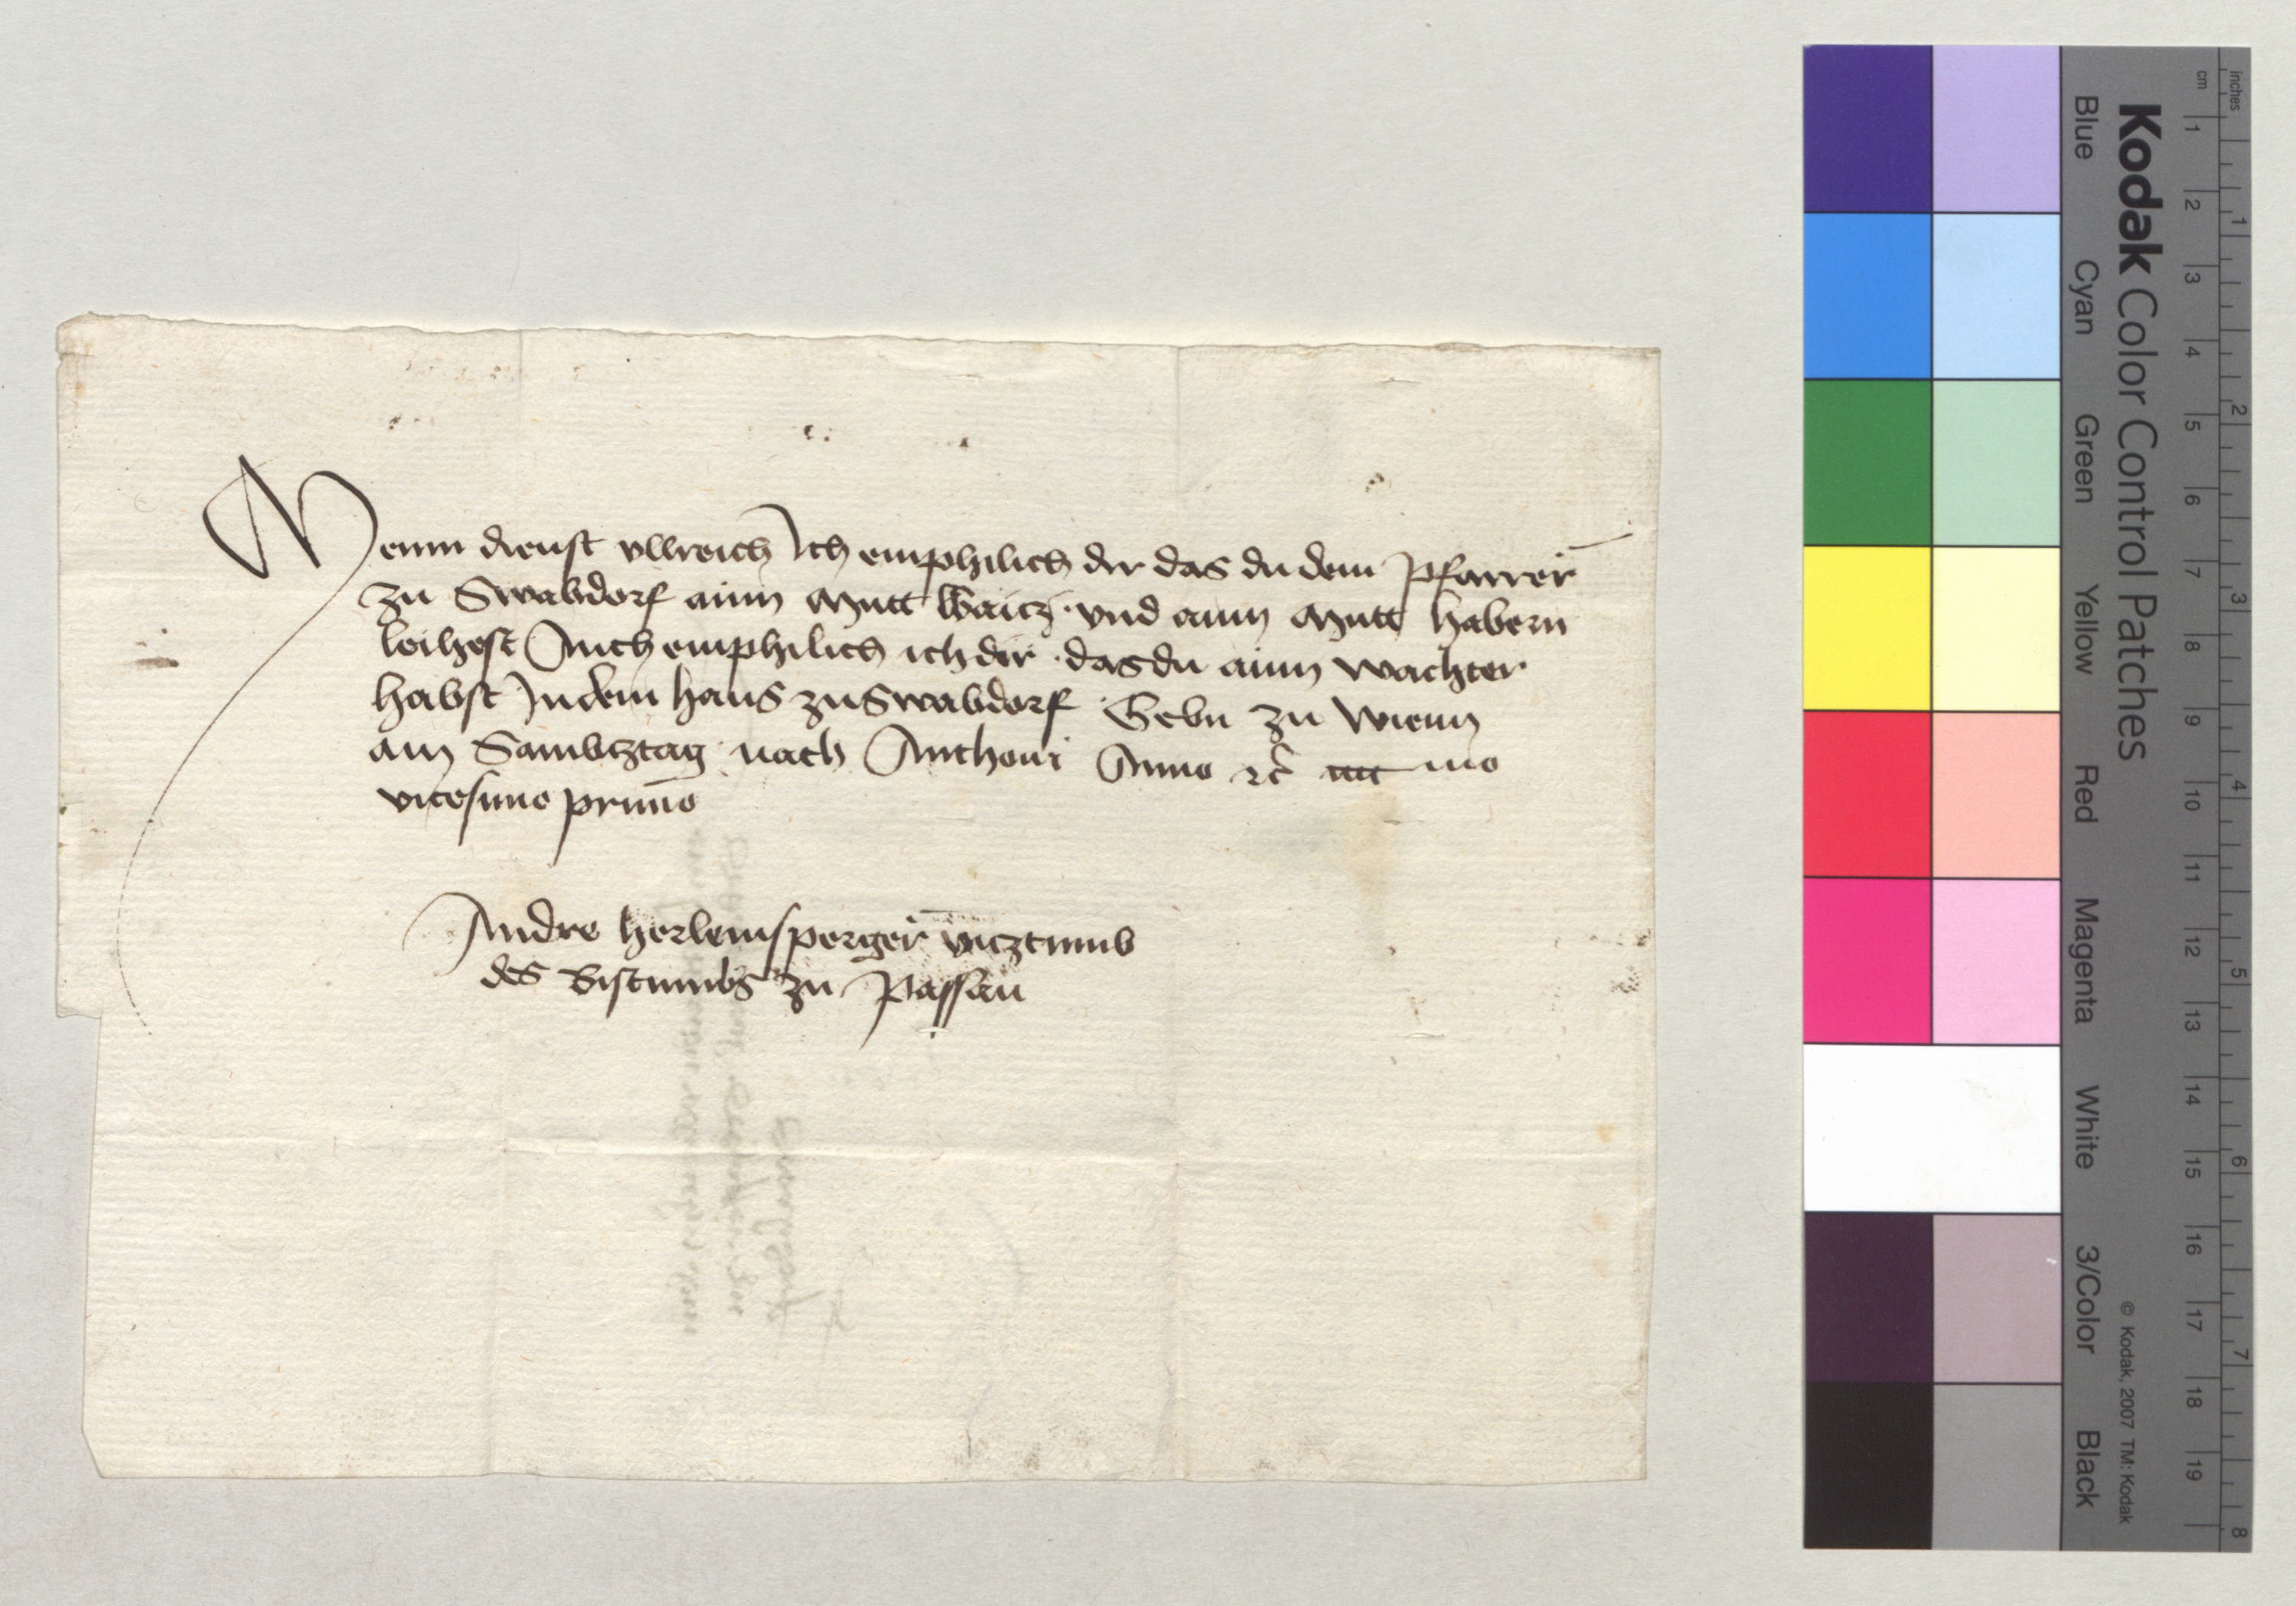 Meinn dienst vllreich Ich emphilich dir das du dem pfarrer
zu Swabdorf ainn Mutt Waicz · vnd ainn Mutt habern
leihest Auch emphilich ich dir · das du ainn wachter
habst In dem haus zu Swabdorf Gebn zu Wienn
am Sambcztag nach Anthoni Anno etc mo
vicesimo primo
Andre herleinsperger vicztumb
des Bistumbs zu Passau
Kodak Color Control Patches
© Kodak, 2007 TM: Kodak
Blue Cyan Green Yellow Red Magenta White 3/Color Black
cm 1 2 3 4 5 6 7 8 9 10 11 12 13 14 15 16 17 18 19
inches 1 2 3 4 5 6 7 8